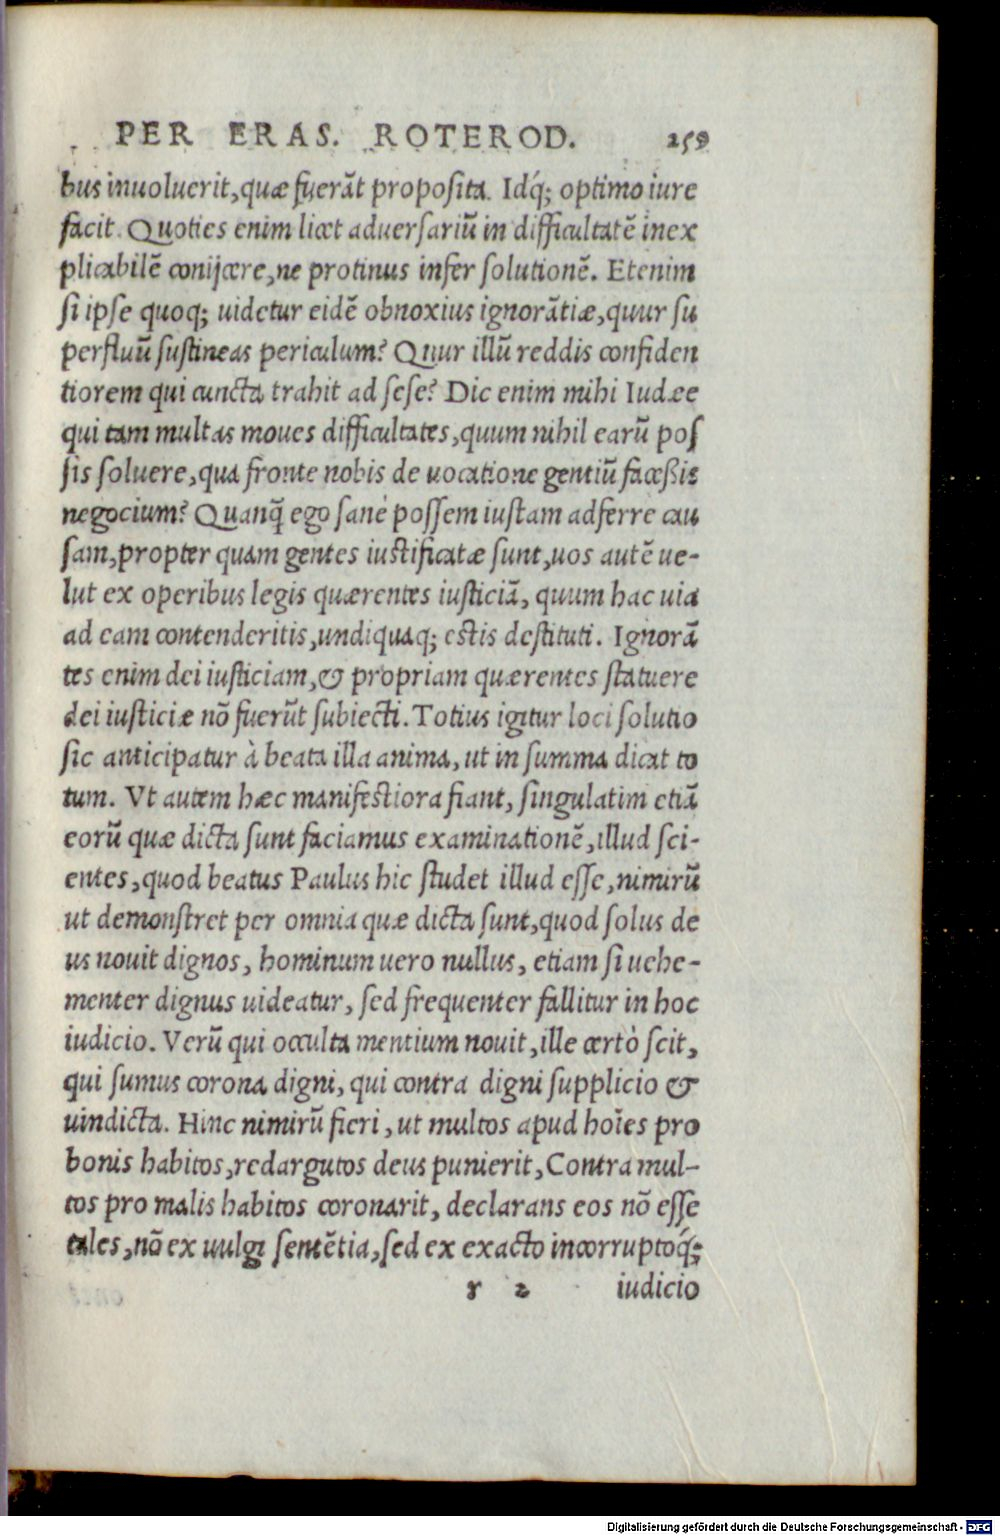 PER ERAS. ROTEROD. 259
bus inuoluerit, quæ fuerāt proposita. Idq́; optimo iure
facit. Quoties enim licet aduersariū in difficultatē inex
plicabilē conijcere, ne protinus infer solutionē. Etenim
si ipse quoq; uidetur eidē obnoxius ignorātiæ, quur su
perfluū sustineas periculum? Quur illū reddis confiden
tiorem qui cuncta trahit ad sese? Dic enim mihi Iudæe
qui tam multas moues difficultates, quum nihil earū pos
sis soluere, qua fronte nobis de uocatione gentiū facessis
negocium? Quanq̄ ego sanè possem iustam adferre cau
sam, propter quam gentes iustificatæ sunt, uos autē ue-
lut ex operibus legis quærentes iusticiā, quum hac uia
ad eam contenderitis, undiquaq; estis destituti. Ignorā
tes enim dei iusticiam, & propriam quærentes statuere
dei iusticiæ nō fuerūt subiecti. Totius igitur loci solutio
sic anticipatur à beata illa anima, ut in summa dicat to
tum. Vt autem hæc manifestiora fiant, singulatim etiā
eorū quæ dicta sunt faciamus examinationē, illud sci-
entes, quod beatus Paulus hic studet illud esse, nimirū
ut demonstret per omnia quæ dicta sunt, quod solus de
us nouit dignos, hominum uero nullus, etiam si uehe-
menter dignus uideatur, sed frequenter fallitur in hoc
iudicio. Verū qui occulta mentium nouit, ille certò scit,
qui sumus corona digni, qui contra digni supplicio &
uindicta. Hinc nimirū fieri, ut multos apud hoīes pro
bonis habitos, redargutos deus punierit, Contra mul-
tos pro malis habitos coronarit, declarans eos nō esse
tales, nō ex uulgi sentētia, sed ex exacto incorruptoq́;
r 2 iudicio
Digitalisierung gefördert durch die Deutsche Forschungsgemeinschaft - DFG